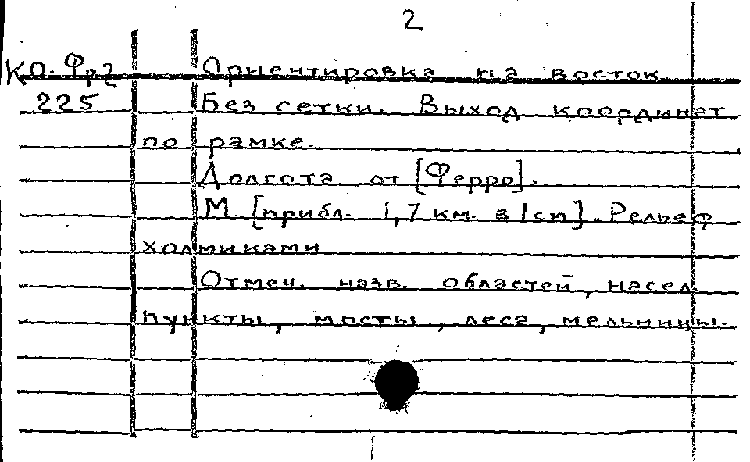 2
КО. Фр2 Ориентировка на восток
225 Без сетки. Выход координат
по рамке.
Долгота от [Ферро].
М [прибл. 1,7 км. в 1см]. Рельеф
холмиками
Отмеч. назв. областей, насел.
пункты, мосты, леса, мельницы.